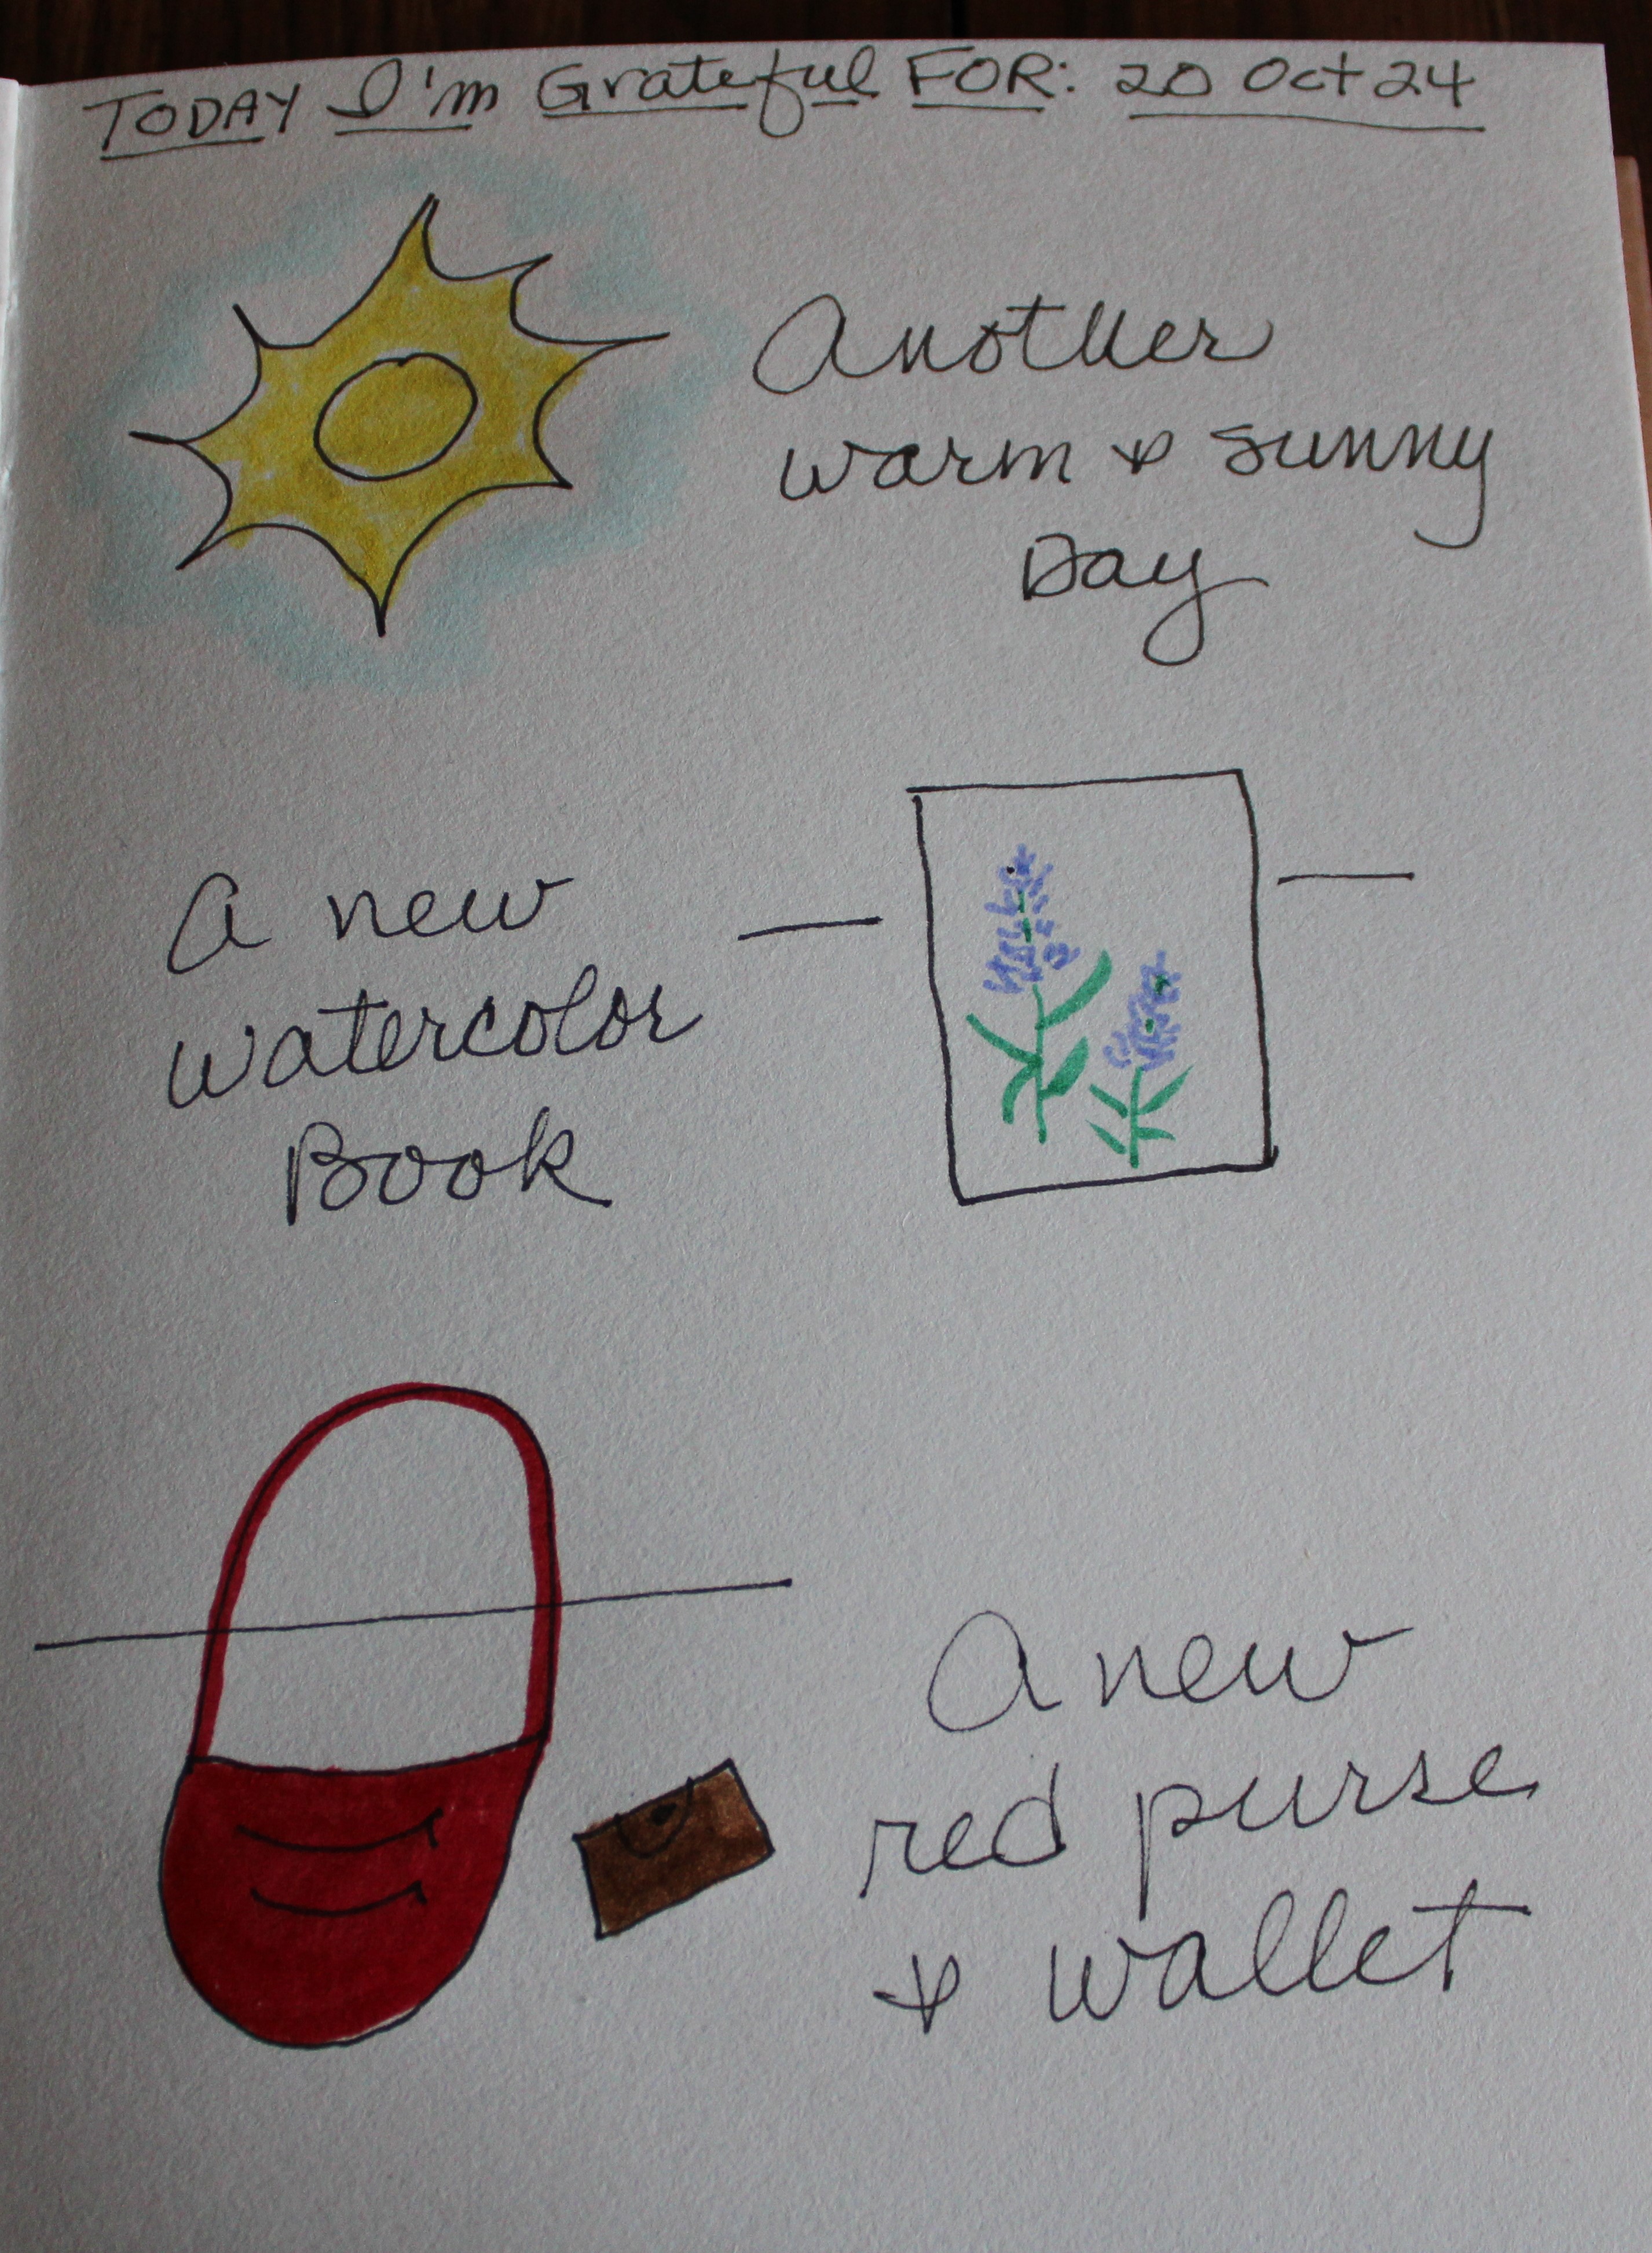 TODAY I'm Grateful FOR: 20 Oct 24
Another
warm & sunny
Day
A new
watercolor
Book
A new
red purse
& wallet